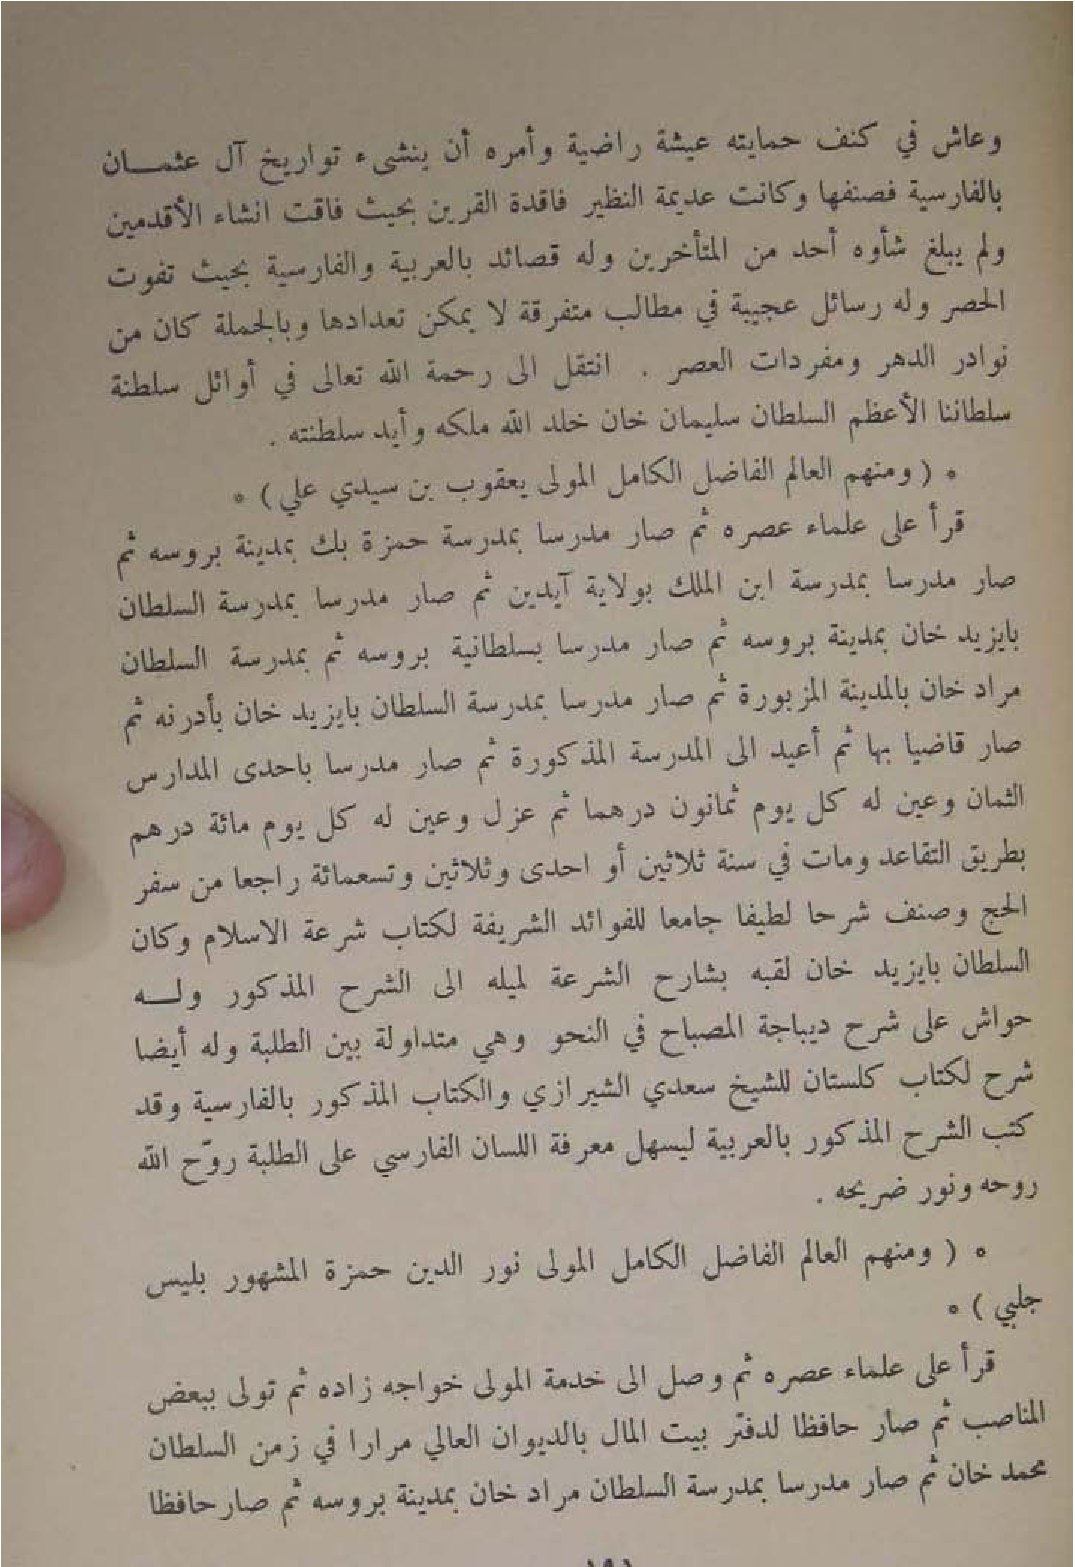 وعاش في كنف حمايته عيشة راضية وأمره أن ينشىء تواريخ آل عثمـــان
بالفارسية فصنفها وكانت عديمة النظير فاقدة القرين بحيث فاقت انشاء الأقدمين
ولم يبلغ شأوه أحد من المتأخرين وله قصائد بالعربية والفارسية بحيث تفوت
الحصر وله رسائل عجيبة في مطالب متفرقة لا يمكن تعدادها وبالجملة كان من
نوادر الدهر ومفردات العصر . انتقل الى رحمة الله تعالى في أوائل سلطنة
سلطاننا الأعظم السلطان سليمان خان خلد الله ملكه وأيد سلطنته .
* ( ومنهم العالم الفاضل الكامل المولى يعقوب بن سيدي علي ) *
قرأ على علماء عصره ثم صار مدرسا بمدرسة حمزة بك بمدينة بروسه ثم
صار مدرسا بمدرسة ابن الملك بولاية آيدين ثم صار مدرسا بمدرسة السلطان
بايزيد خان بمدينة بروسه ثم صار مدرسا بسلطانية بروسه ثم بمدرسة السلطان
مراد خان بالمدينة المزبورة ثم صار مدرسا بمدرسة السلطان بايزيد خان بأدرنه ثم
صار قاضيا بها ثم أعيد الى المدرسة المذكورة ثم صار مدرسا باحدى المدارس
الثمان وعين له كل يوم ثمانون درهما ثم عزل وعين له كل يوم مائة درهم
بطريق التقاعد ومات في سنة ثلاثين أو احدى وثلاثين وتسعمائة راجعا من سفر
الحج وصنف شرحا لطيفا جامعا للفوائد الشريفة لكتاب شرعة الاسلام وكان
السلطان بايزيد خان لقبه بشارح الشرعة لميله الى الشرح المذكور ولـــه
حواش على شرح ديباجة المصباح في النحو وهي متداولة بين الطلبة وله أيضا
شرح لكتاب كلستان للشيخ سعدي الشيرازي والكتاب المذكور بالفارسية وقد
كتب الشرح المذكور بالعربية ليسهل معرفة اللسان الفارسي على الطلبة روّح الله
روحه ونور ضريحه .
* ( ومنهم العالم الفاضل الكامل المولى نور الدين حمزة المشهور بليس
جلبي ) *
قرأ على علماء عصره ثم وصل الى خدمة المولى خواجه زاده ثم تولى ببعض
المناصب ثم صار حافظا لدفتر بيت المال بالديوان العالي مرارا في زمن السلطان
محمد خان ثم صار مدرسا بمدرسة السلطان مراد خان بمدينة بروسه ثم صار حافظا